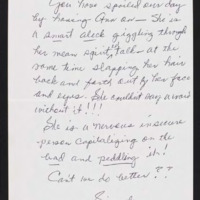 you have spoiled our day
by having Ann on — She is
a smart aleck giggling through
her mean spirit, Talk — at the
same time slapping her hair
back and forth out of her face
and eyes. She couldn't say a word
without it!!!
She is a nervous insecure
person capitalizing on the
bad and peddling it!
Can't we do better??